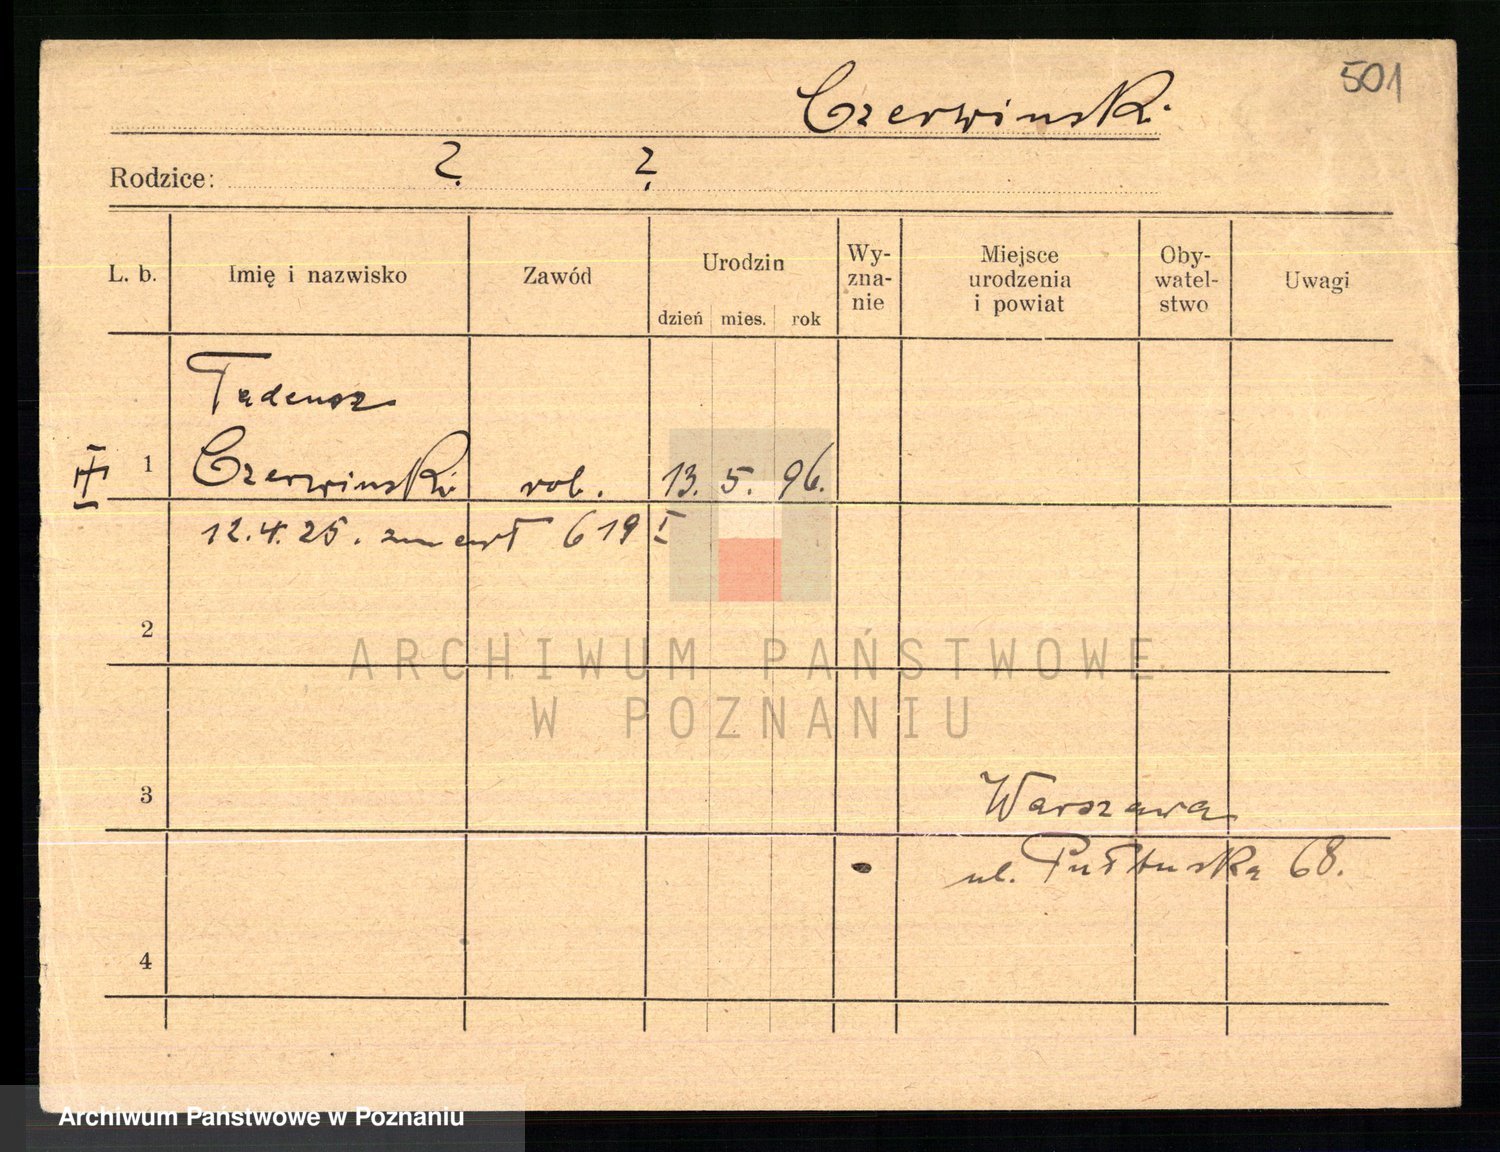 501
Czerwinski
Rodzice: ? ?
L. b. Imię i nazwisko Zawód Urodzin dzień mies. rok Wy-zna-nie Miejsce urodzenia i powiat Oby-watel-stwo Uwagi
Tadeusz
1 Czerwinski rob. 13. 5. 96.
12.4.25. zmarł 619 I
2
ARCHIWUM PAŃSTWOWE
W POZNANIU
3 Warszawa
ul. Pułtuska 68.
4
Archiwum Państwowe w Poznaniu